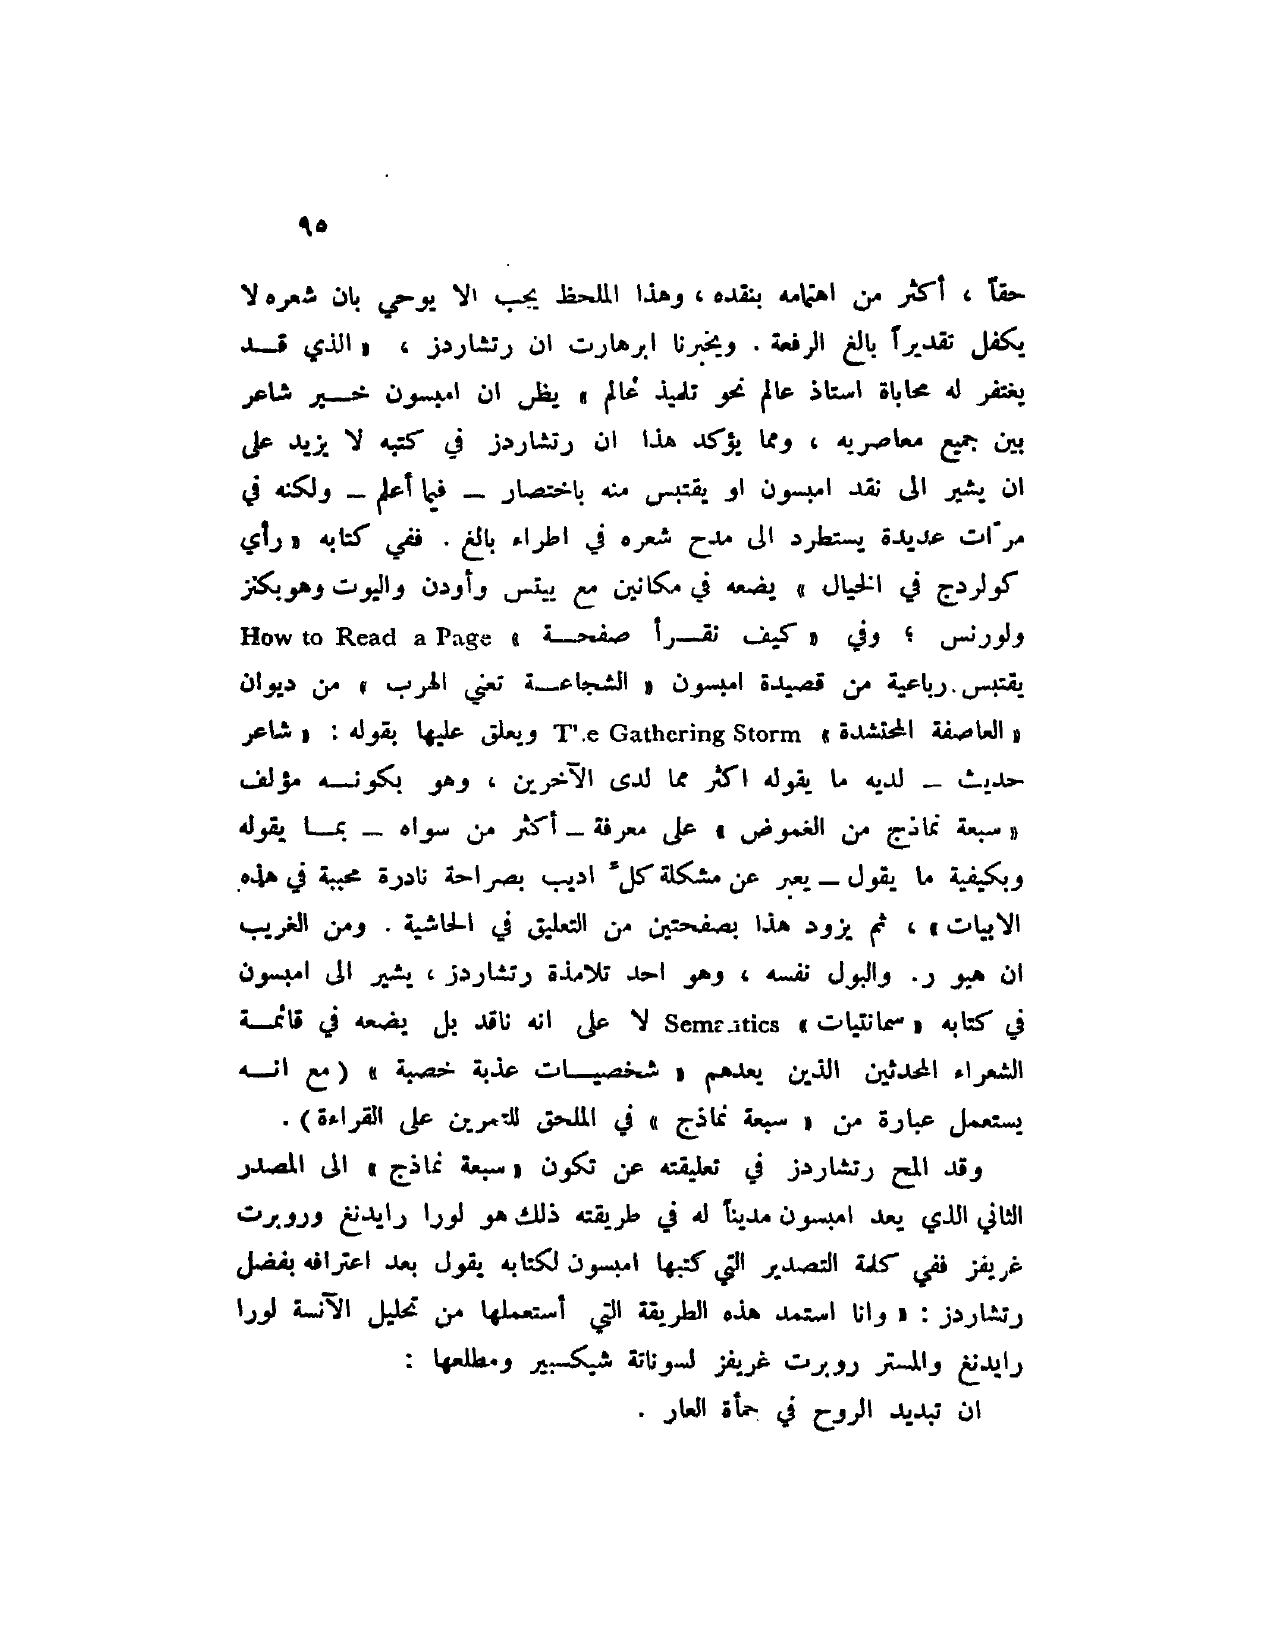 ٩٥
حقاً ، أكثر من اهتمامه بنقده ، وهذا اللحظ يجب الا يوحي بان شعره لا
يكفل تقديراً بالغ الرفعة . ويخبرنا ابرهارت ان رتشاردز ، « الذي قــد
يغتفر له محاباة استاذ عالم نحو تلميذ عُالم » يظن ان امبسون خــير شاعر
بين جميع معاصريه ، ومما يؤكد هذا ان رتشاردز في كتبه لا يزيد على
ان يشير الى نقد امبسون او يقتبس منه باختصار – فيما أعلم – ولكنه في
مرّات عديدة يستطرد الى مدح شعره في اطراء بالغ . ففي كتابه « رأي
كولردج في الخيال » يضعه في مكانين مع ييتس وأودن واليوت وهوبكنز
ولورنس ؟ وفي « كيف نقــرأ صفحــة » How to Read a Page
يقتبس رباعية من قصيدة امبسون « الشجاعــة تعني الهرب » من ديوان
« العاصفة المحتشدة » T'.e Gathering Storm ويعلق عليها بقوله : « شاعر
حديث – لديه ما يقوله اكثر مما لدى الآخرين ، وهو بكونــه مؤلف
« سبعة نماذج من الغموض » على معرفة – أكثر من سواه – بمــا يقوله
وبكيفية ما يقول – يعبر عن مشكلة كلّ اديب بصراحة نادرة محببة في هذه
الابيات » ، ثم يزود هذا بصفحتين من التعليق في الحاشية . ومن الغريب
ان هيو ر. والبول نفسه ، وهو احد تلامذة رتشاردز ، يشير الى امبسون
في كتابه « سمانتيات » Semantics لا على انه ناقد بل يضعه في قائمــة
الشعراء المحدثين الذين يعدهم « شخصيــات عذبة خصبة » ( مع انــه
يستعمل عبارة من « سبعة نماذج » في الملحق للتمرين على القراءة ) .
وقد المح رتشاردز في تعليقته عن تكون « سبعة نماذج » الى المصدر
الثاني الذي يعد امبسون مديناً له في طريقته ذلك هو لورا رايدنغ وروبرت
غريفز ففي كلمة التصدير التي كتبها امبسون لكتابه يقول بعد اعترافه بفضل
رتشاردز : « وانا استمد هذه الطريقة التي أستعملها من تحليل الآنسة لورا
رايدنغ والمستر روبرت غريفز لسوناتة شيكسبير ومطلعها :
ان تبديد الروح في حمأة العار .